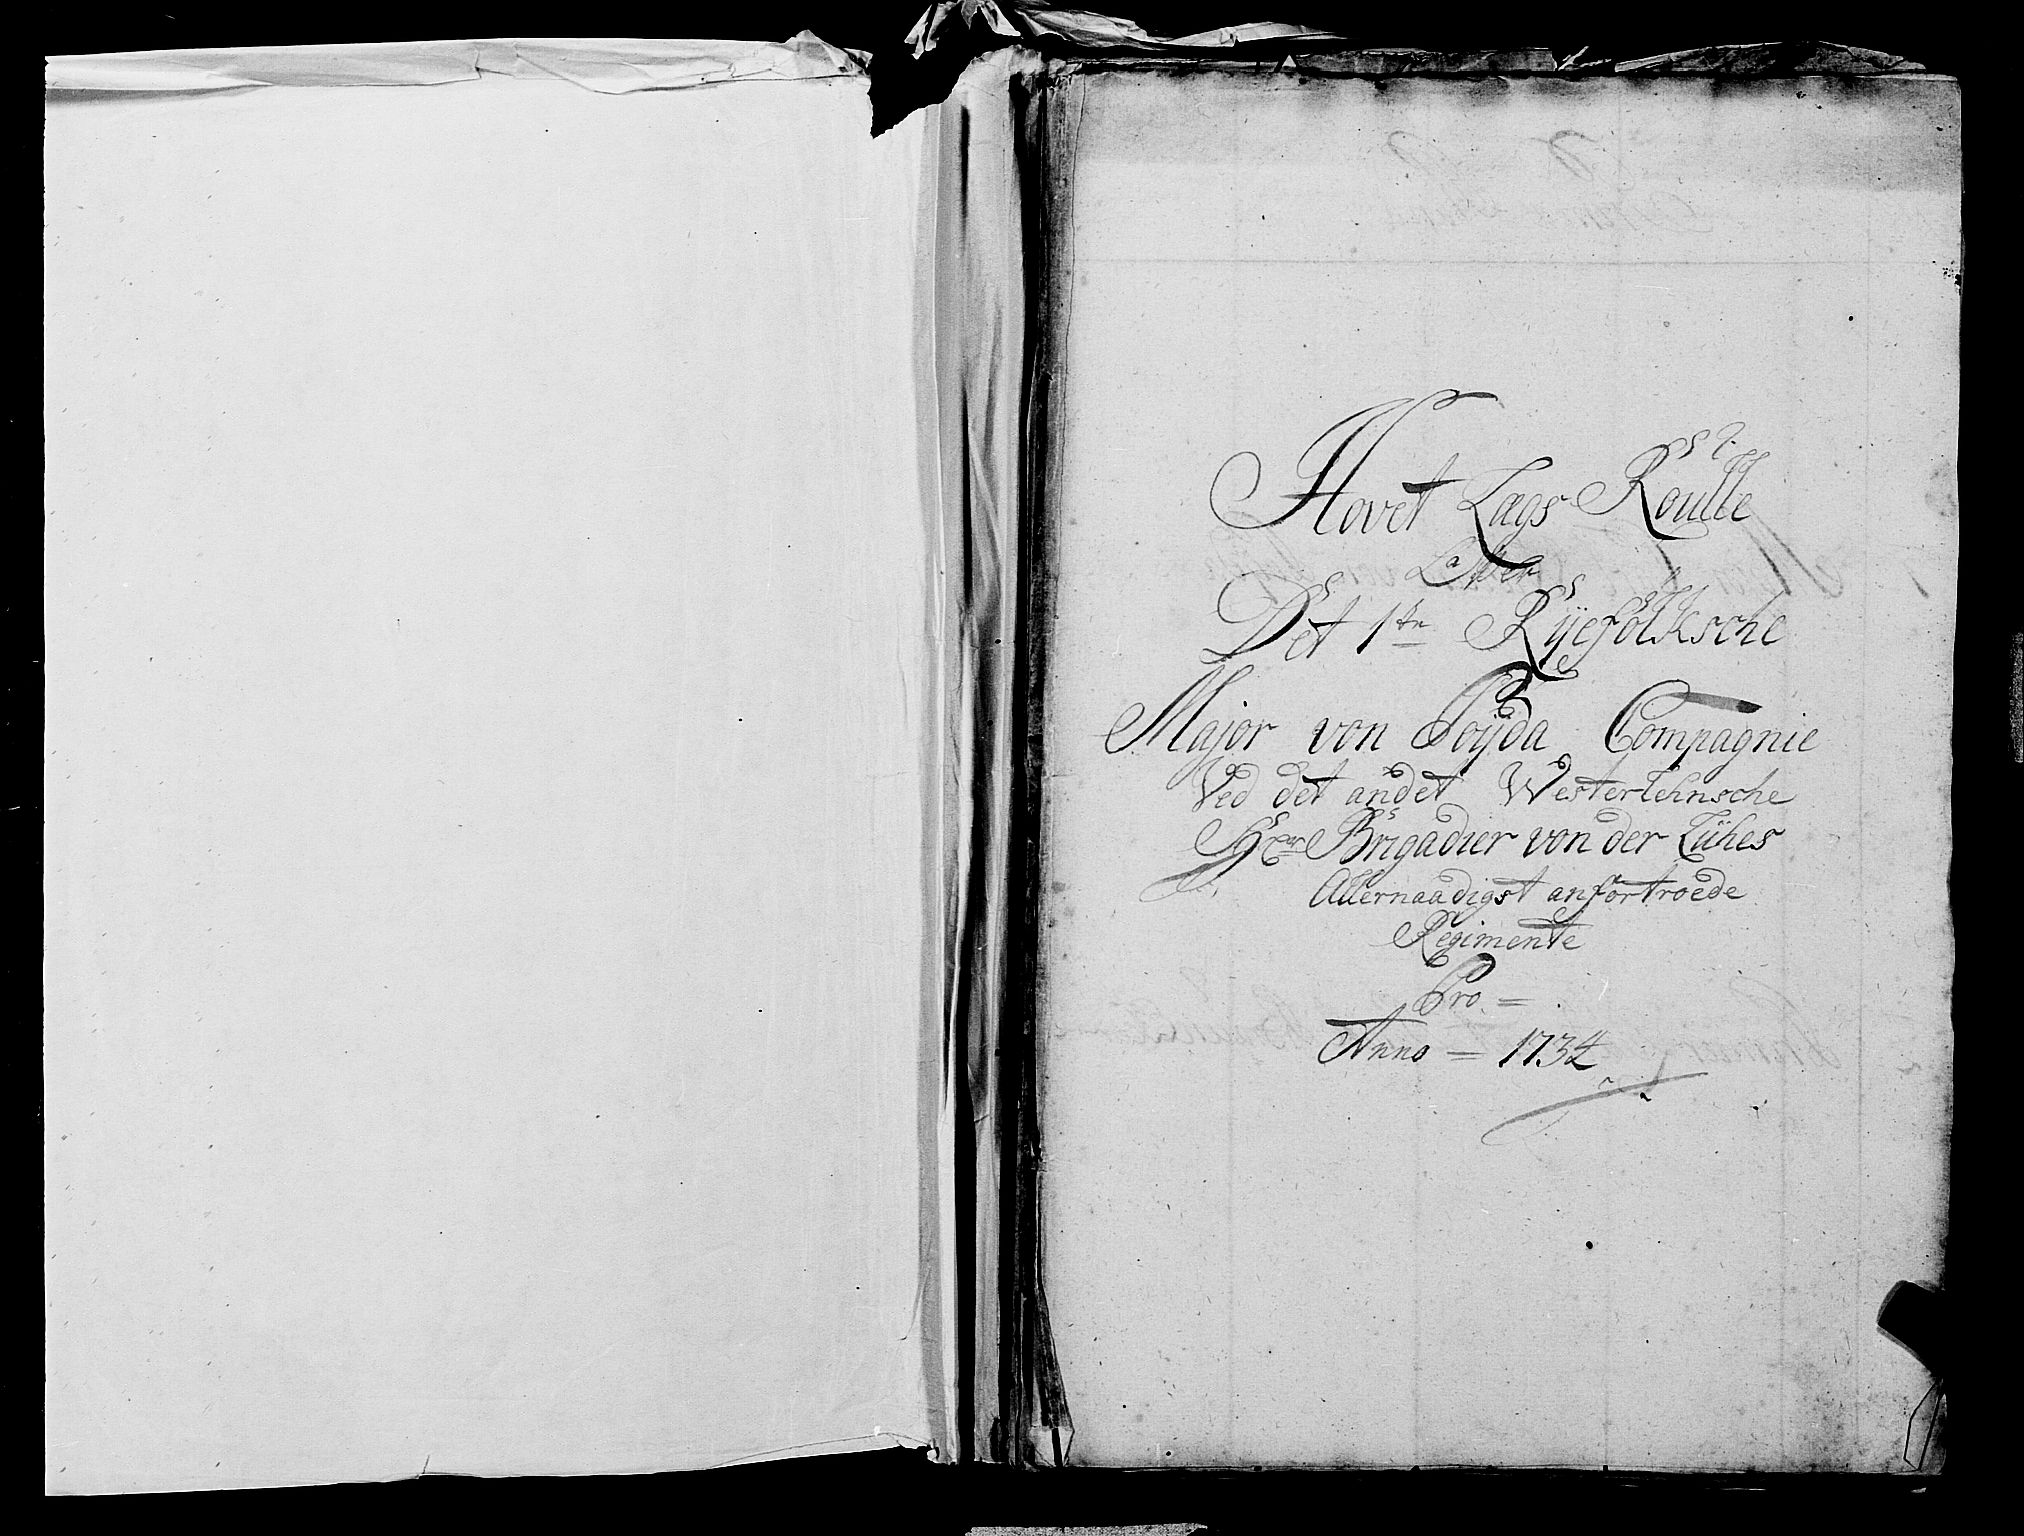 Hovet Lægs Roulle
Over
Det 1ste Ryefolksche
Major von Pøyda Compagnie
Ved det andet Westerlehnsche
Hr Brigadier von der Lühes
Allernaadigst anfortroede
Regimente
Pro =
Anno = 1734